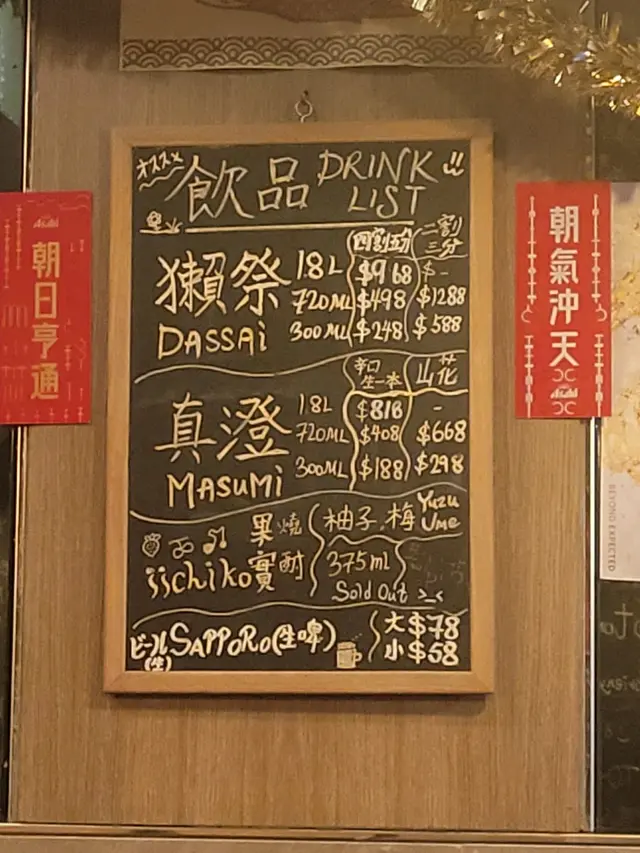 オススメ
飲品 DRINK LIST !!
四割五分 二割三分
獺祭 1.8L $968 $-
720ML $498 $1288
DASSAi 300ML $248 $588
辛口生一本 山花
真澄 1.8L $818 -
720ML $408 $668
MASUMi 300ML $188 $298
果實 燒酎 柚子.梅 Yuzu Ume
iichiko 375ml
Sold Out >_<
ビール(生) SAPPORO(生啤) 大$78
小$58
Asahi
朝日亨通
朝氣沖天
Asahi
BEYOND EXPECTED